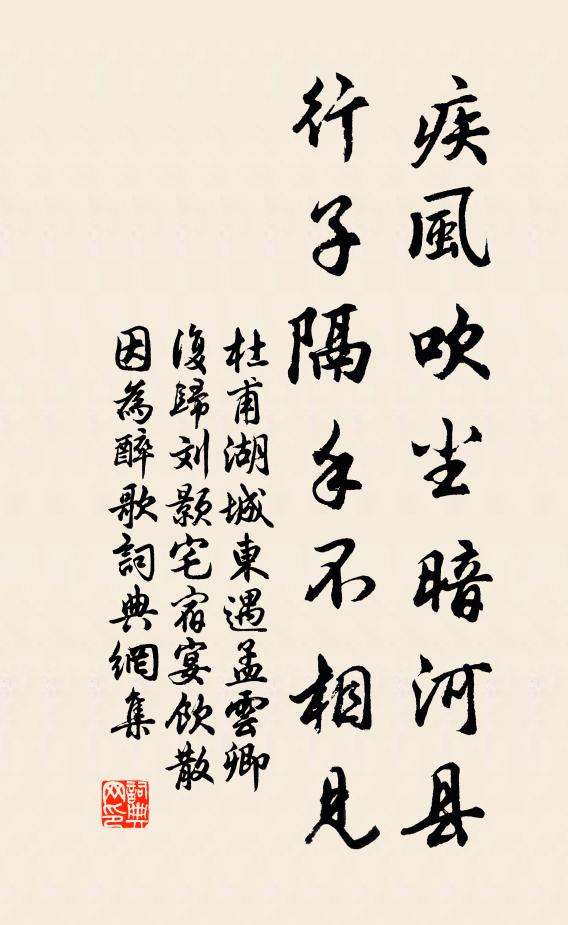 疾風吹尘暗河县
行子隔手不相見
杜甫湖城東遇孟雲卿
復歸刘颢宅宿宴飲散
因為醉歌詞典網集
詞典网印